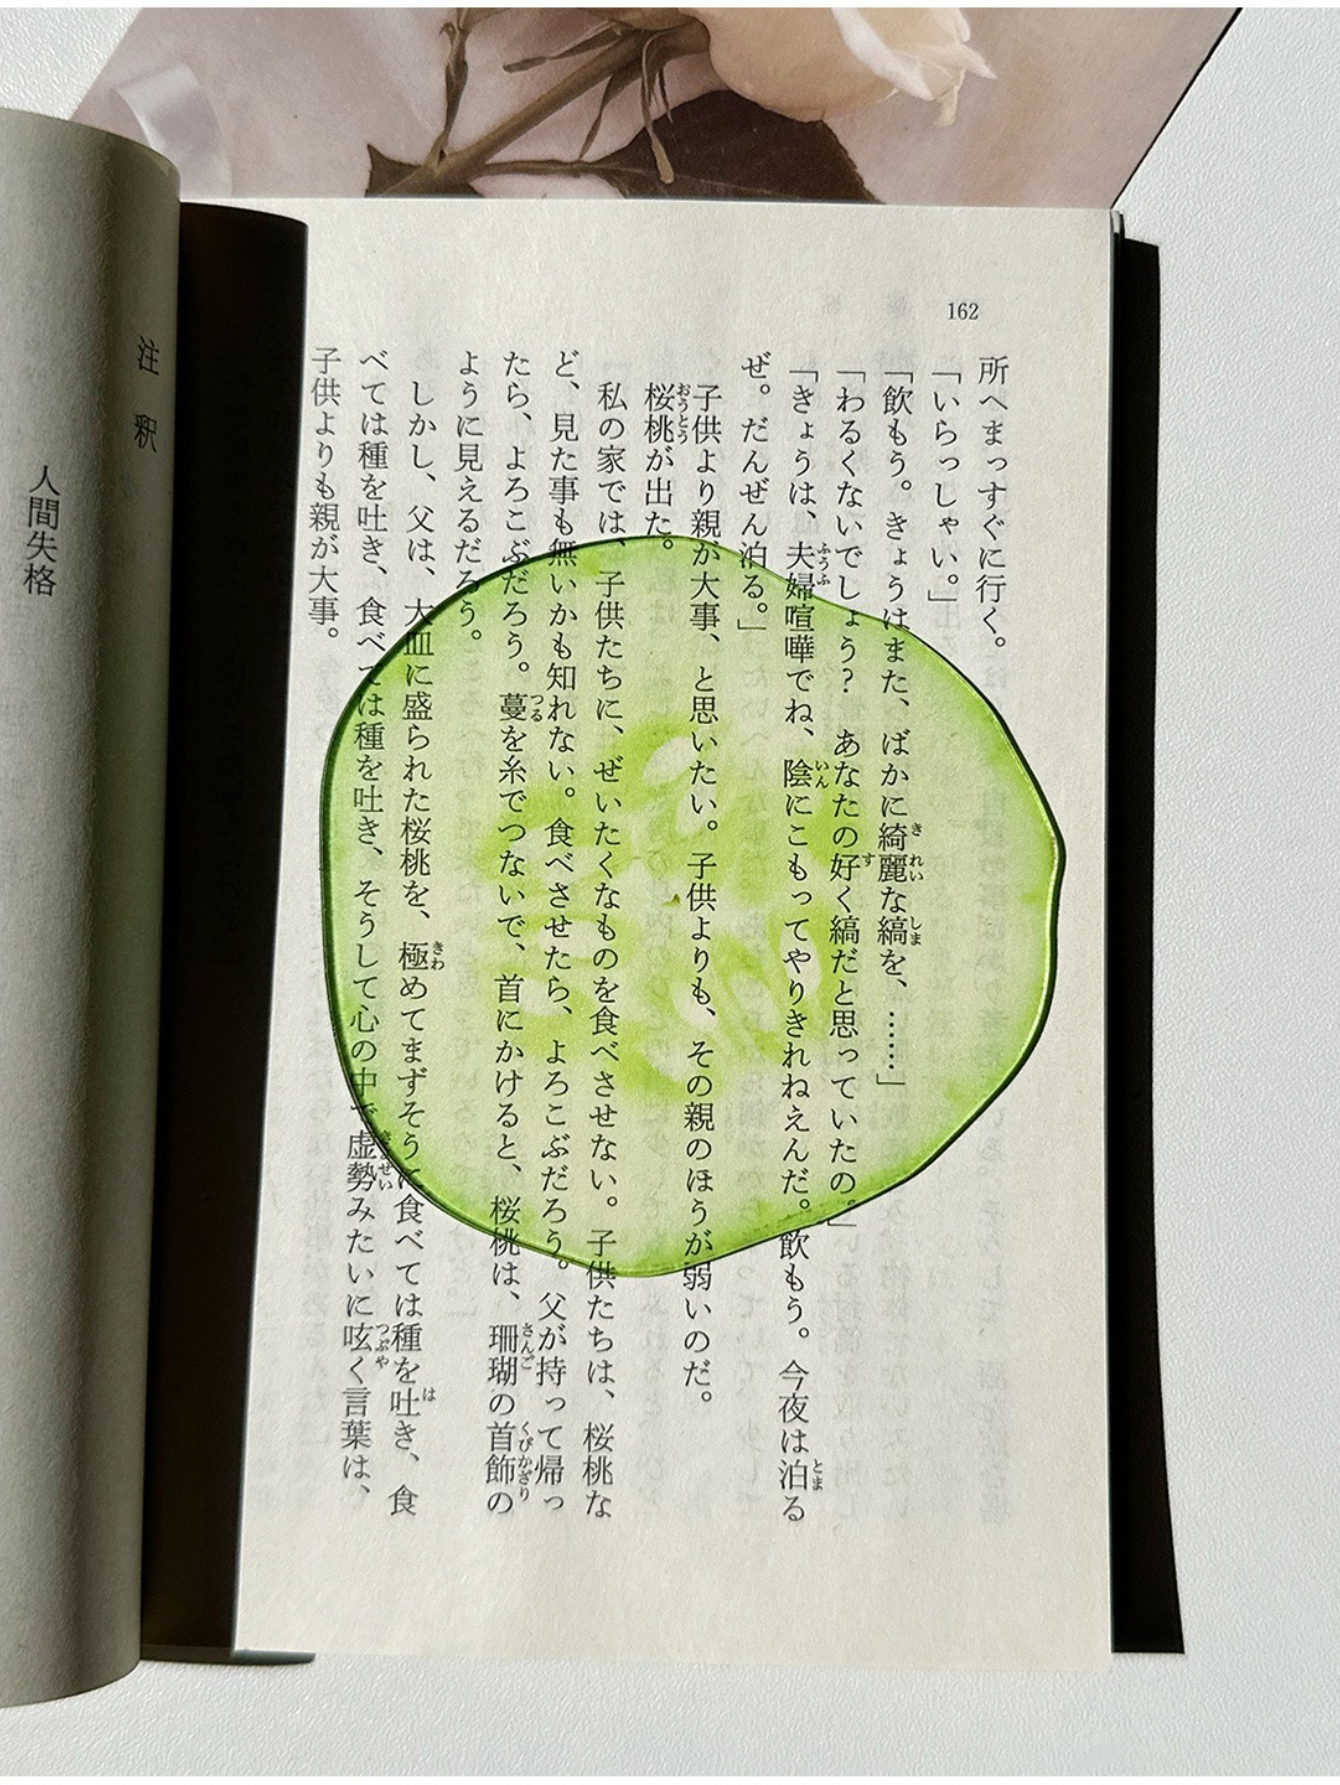 162
所へまっすぐに行く。
「いらっしゃい。」
「飲もう。きょうはまた、ばかに綺麗な縞を、……」
「わるくないでしょう? あなたの好く縞だと思っていたの。」
「きょうは、夫婦喧嘩でね、陰にこもってやりきれねえんだ。飲もう。今夜は泊る
ぜ。だんぜん泊る。」
子供より親が大事、と思いたい。子供よりも、その親のほうが弱いのだ。
桜桃が出た。
私の家では、子供たちに、ぜいたくなものを食べさせない。子供たちは、桜桃な
ど、見た事も無いかも知れない。食べさせたら、よろこぶだろう。父が持って帰っ
たら、よろこぶだろう。蔓を糸でつないで、首にかけると、桜桃は、珊瑚の首飾の
ように見えるだろう。
しかし、父は、大皿に盛られた桜桃を、極めてまずそうに食べては種を吐き、食
べては種を吐き、食べては種を吐き、そうして心の中で虚勢みたいに呟く言葉は、
子供よりも親が大事。
注釈
人間失格